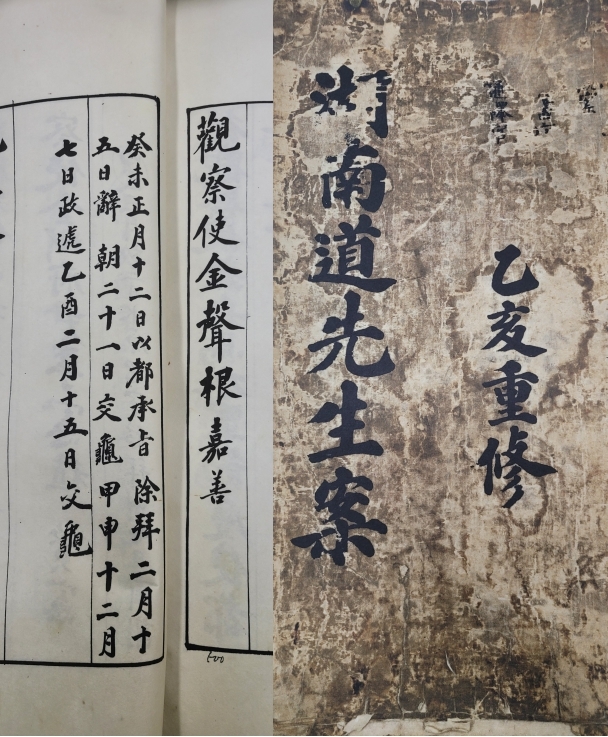 乙亥重修
湖南道先生案
觀察使金聲根嘉善
癸未正月十二日以都承旨 除拜二月十
五日辭 朝二十一日交龜甲申十二月
七日政遞乙酉二月十五日交龜